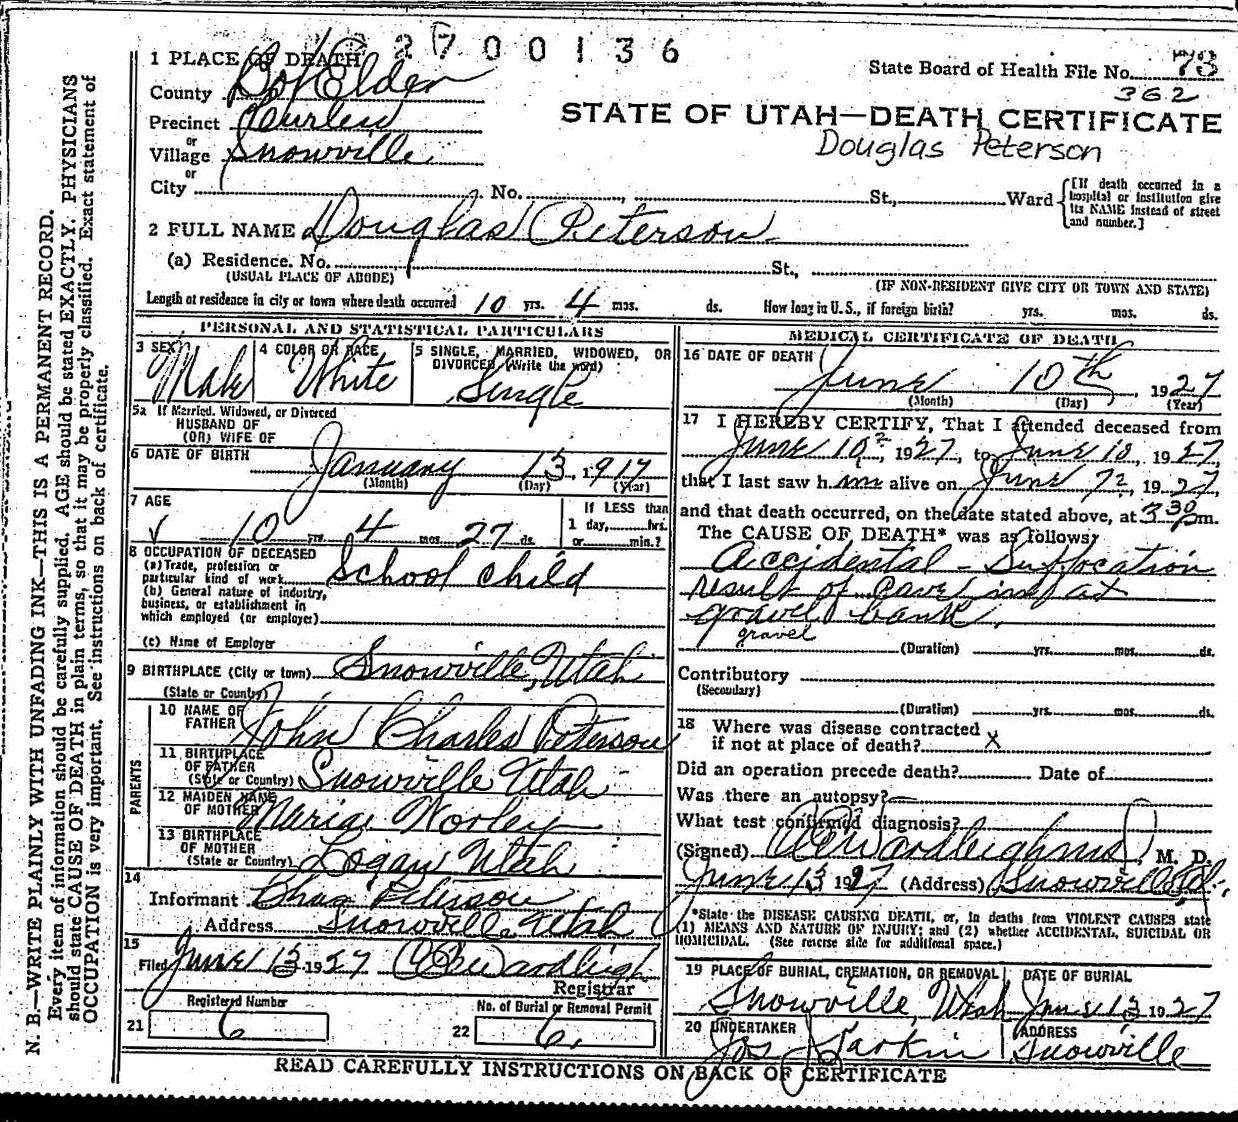 2700136
1 PLACE OF DEATH
State Board of Health File No. 73
County Box Elder
362
Precinct Curlew
STATE OF UTAH—DEATH CERTIFICATE
or
Village Snowville
Douglas Peterson
or
City No. St., Ward
[If death occurred in a hospital or institution give its NAME instead of street and number.]
2 FULL NAME Douglas Peterson
(a) Residence. No. St.,
(USUAL PLACE OF ABODE) (IF NON-RESIDENT GIVE CITY OR TOWN AND STATE)
Length of residence in city or town where death occurred 10 yrs. 4 mos. ds. How long in U. S., if foreign birth? yrs. mos. ds.
PERSONAL AND STATISTICAL PARTICULARS
3 SEX Male
4 COLOR OR RACE White
5 SINGLE, MARRIED, WIDOWED, OR
DIVORCED (Write the word)
Single
5a If Married, Widowed, or Divorced
HUSBAND OF
(OR) WIFE OF
6 DATE OF BIRTH
January 13, 1917
(Month) (Day) (Year)
7 AGE
10 yrs. 4 mos. 27 ds.
If LESS than
1 day, hrs.
or min.?
8 OCCUPATION OF DECEASED
(a) Trade, profession or
particular kind of work School child
(b) General nature of industry,
business, or establishment in
which employed (or employer)
(c) Name of Employer
9 BIRTHPLACE (City or town) Snowville, Utah
(State or Country)
PARENTS
10 NAME OF
FATHER John Charles Peterson
11 BIRTHPLACE
OF FATHER
(State or Country) Snowville Utah
12 MAIDEN NAME
OF MOTHER
13 BIRTHPLACE
OF MOTHER
(State or Country) Logan Utah
14
Informant Chas Peterson
Address Snowville Utah
15
Filed June 13 1927
Registrar
Registered Number
21 6
No. of Burial or Removal Permit
22 6.
MEDICAL CERTIFICATE OF DEATH
16 DATE OF DEATH
June 10th, 1927
(Month) (Day) (Year)
17 I HEREBY CERTIFY, That I attended deceased from
June 10, 1927, to June 10, 1927,
that I last saw him alive on June, 1927,
and that death occurred, on the date stated above, at 3 30 pm.
The CAUSE OF DEATH* was as follows:
Accidental - Suffocation
result of cave in of at
gravel bank.
gravel
(Duration) yrs. mos. ds.
Contributory
(Secondary)
(Duration) yrs. mos. ds.
18 Where was disease contracted
if not at place of death? X
Did an operation precede death? Date of
Was there an autopsy?
What test confirmed diagnosis?
(Signed) M. D.
June 13 1927 (Address) Snowville
*State the DISEASE CAUSING DEATH, or, in deaths from VIOLENT CAUSES state
(1) MEANS AND NATURE OF INJURY; and (2) whether ACCIDENTAL, SUICIDAL OR
HOMICIDAL. (See reverse side for additional space.)
19 PLACE OF BURIAL, CREMATION, OR REMOVAL DATE OF BURIAL
Snowville, Utah June 13 1927
20 UNDERTAKER ADDRESS
Jos Larkin Snowville
READ CAREFULLY INSTRUCTIONS ON BACK OF CERTIFICATE
N. B.—WRITE PLAINLY WITH UNFADING INK—THIS IS A PERMANENT RECORD.
Every item of information should be carefully supplied. AGE should be stated EXACTLY. PHYSICIANS
should state CAUSE OF DEATH in plain terms, so that it may be properly classified. Exact statement of
OCCUPATION is very important. See instructions on back of certificate.